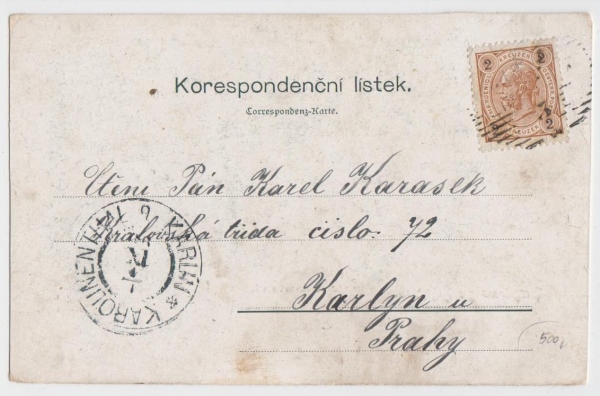 Korespondenční lístek.
Correspondenz-Karte.
2 KREUZER 2
2
KREUZER
Ctění Pán Karel Karasek
Kralovská třída cislo: 72
Karlyn u
Prahy
KAROLINENTHAL 2 KARLIN
500,